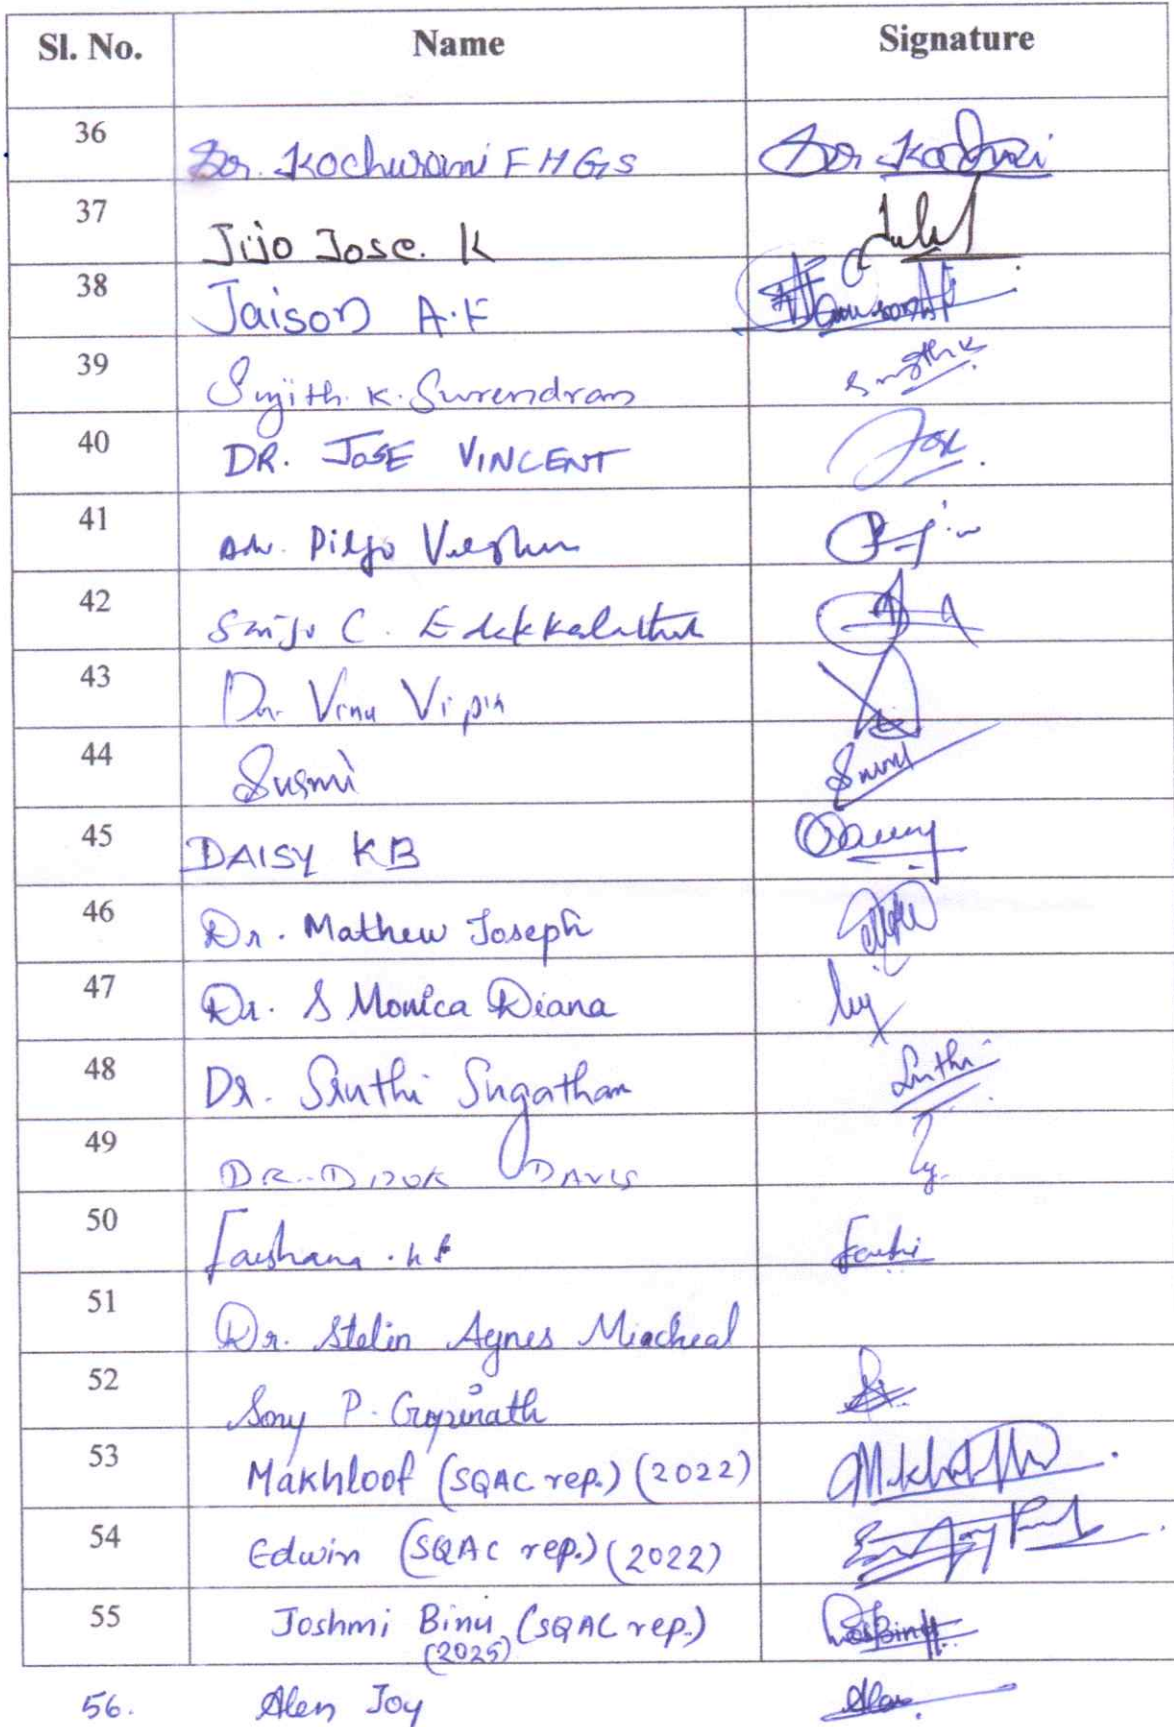 Sl. No. Name Signature
36 Sr. Kochurani FHGS Sr. Kochurani
37 Jijo Jose. K
38 Jaison A.F
39 Sujith. K. Surendran Sujith K
40 DR. JOSE VINCENT Jose
41 Adv. Piljo Varghese
42 Saijo C. Edakkalathur
43 Dr. Vinu Vipin
44 Susmi Susmi
45 DAISY KB Daisy
46 Dr. Mathew Joseph
47 Dr. S Monica Diana
48 Dr. Sruthi Sugathan Sruthi
49 DR. DAVIS
50 Farshana
51 Dr. Stelin Agnes Miacheal
52 Sony P. Gopinath
53 Makhloof (SQAC rep.) (2022)
54 Edwin (SQAC rep.) (2022)
55 Joshmi Binu (SQAC rep.)
(2025)
56. Alen Joy Alen